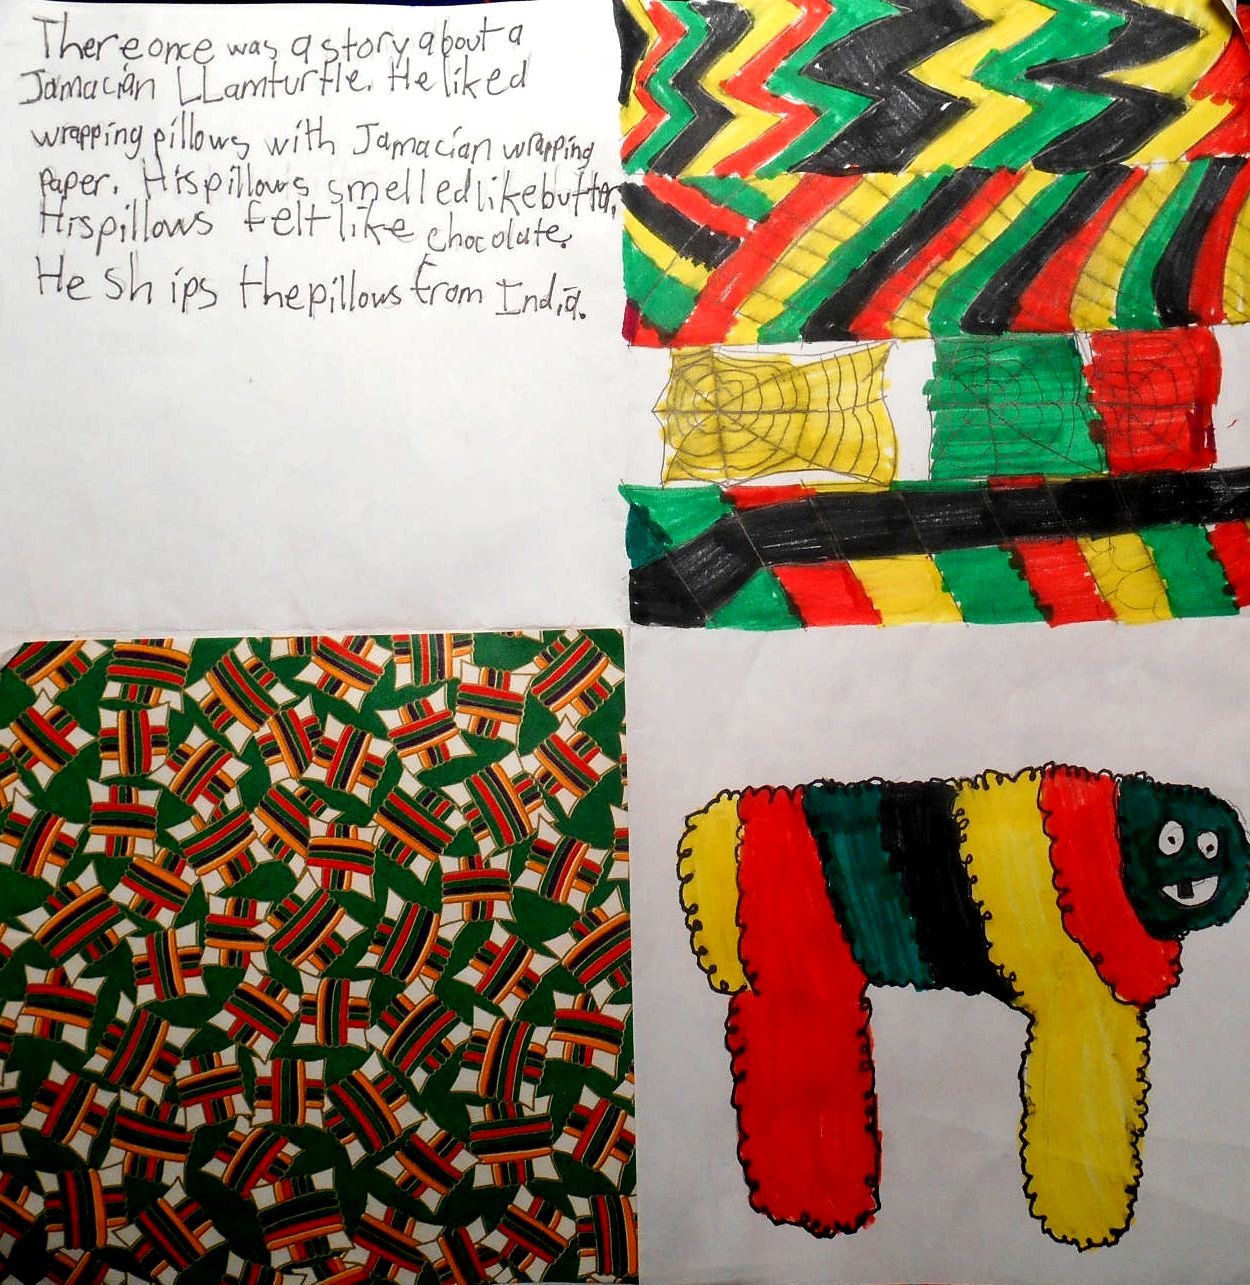 There once was a story about a
Jamacian LLamturtle. He liked
wrapping pillows with Jamacian wrapping
paper. His pillows smelled like butter.
His pillows felt like chocolate.
He ships the pillows from India.